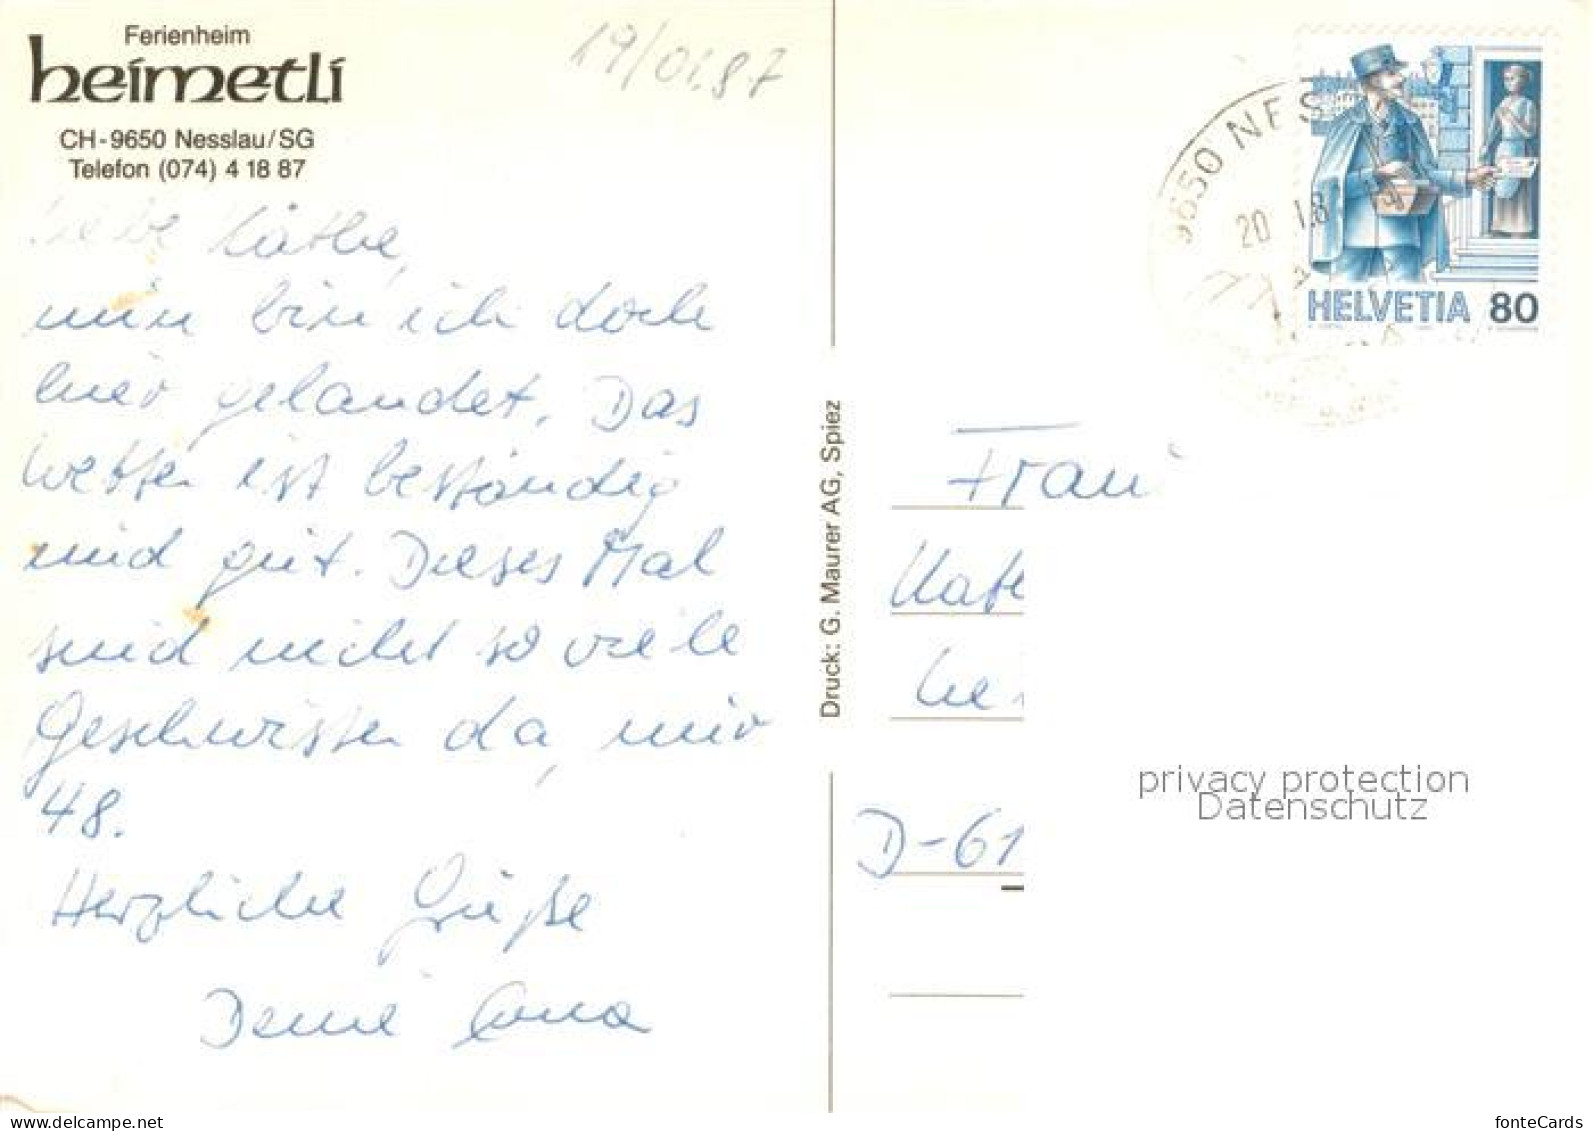 Ferienheim
heimetli
CH-9650 Nesslau/SG
Telefon (074) 4 18 87
19/01.87
Liebe Käthe,
nun bin ich doch
hier gelandet. Das
Wetter ist beständig
und gut. Dieses Mal
sind nicht so viele
Geschwister da, nur
48.
Herzliche Grüße
Deine
Druck: G. Maurer AG, Spiez
9650 NES
20 1.8
HELVETIA 80
Frau
D-61
privacy protection
Datenschutz
www.delcampe.net
fonteCards